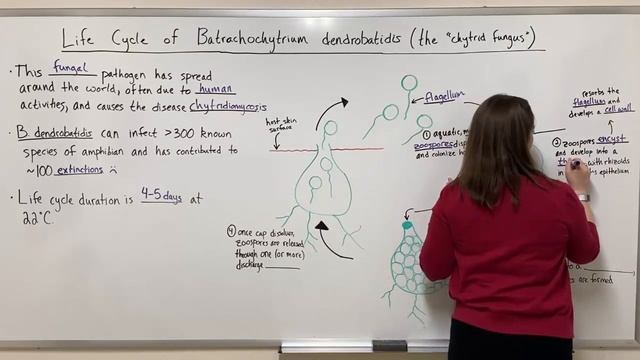 Life Cycle of Batrachochytrium dendrobatidis (the "chytrid fungus")
• This fungal pathogen has spread
around the world, often due to human
activities, and causes the disease chytridiomycosis
• B. dendrobatidis can infect >300 known
species of amphibian and has contributed to
~100 extinctions
• Life cycle duration is 4-5 days at
22°C.
host skin
surface
flagellum
① aquatic,
zoospores
and colonize
resorbs the
flagellum and
develops a cell wall
② zoospores encyst
and develop into a
th with rhizoids
in epithelium
④ once cap dissolves,
zoospores are released
through one (or more)
discharge
to a
are formed